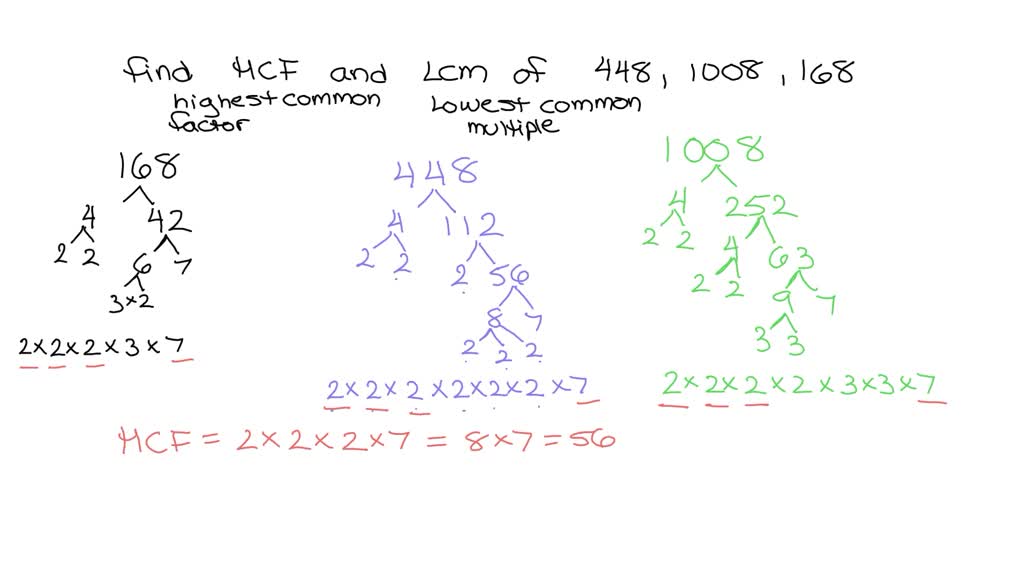 find HCF and LCM of 448, 1008, 168
highest common factor
Lowest common multiple
168
4 42
2 2 6 7
3×2
2×2×2×3×7
448
4 112
2 2 2 56
8 7
2 2 2
2×2×2×2×2×2×7
1008
4 252
2 2 4 63
2 2 9 7
3 3
2×2×2×2×3×3×7
HCF = 2×2×2×7 = 8×7=56